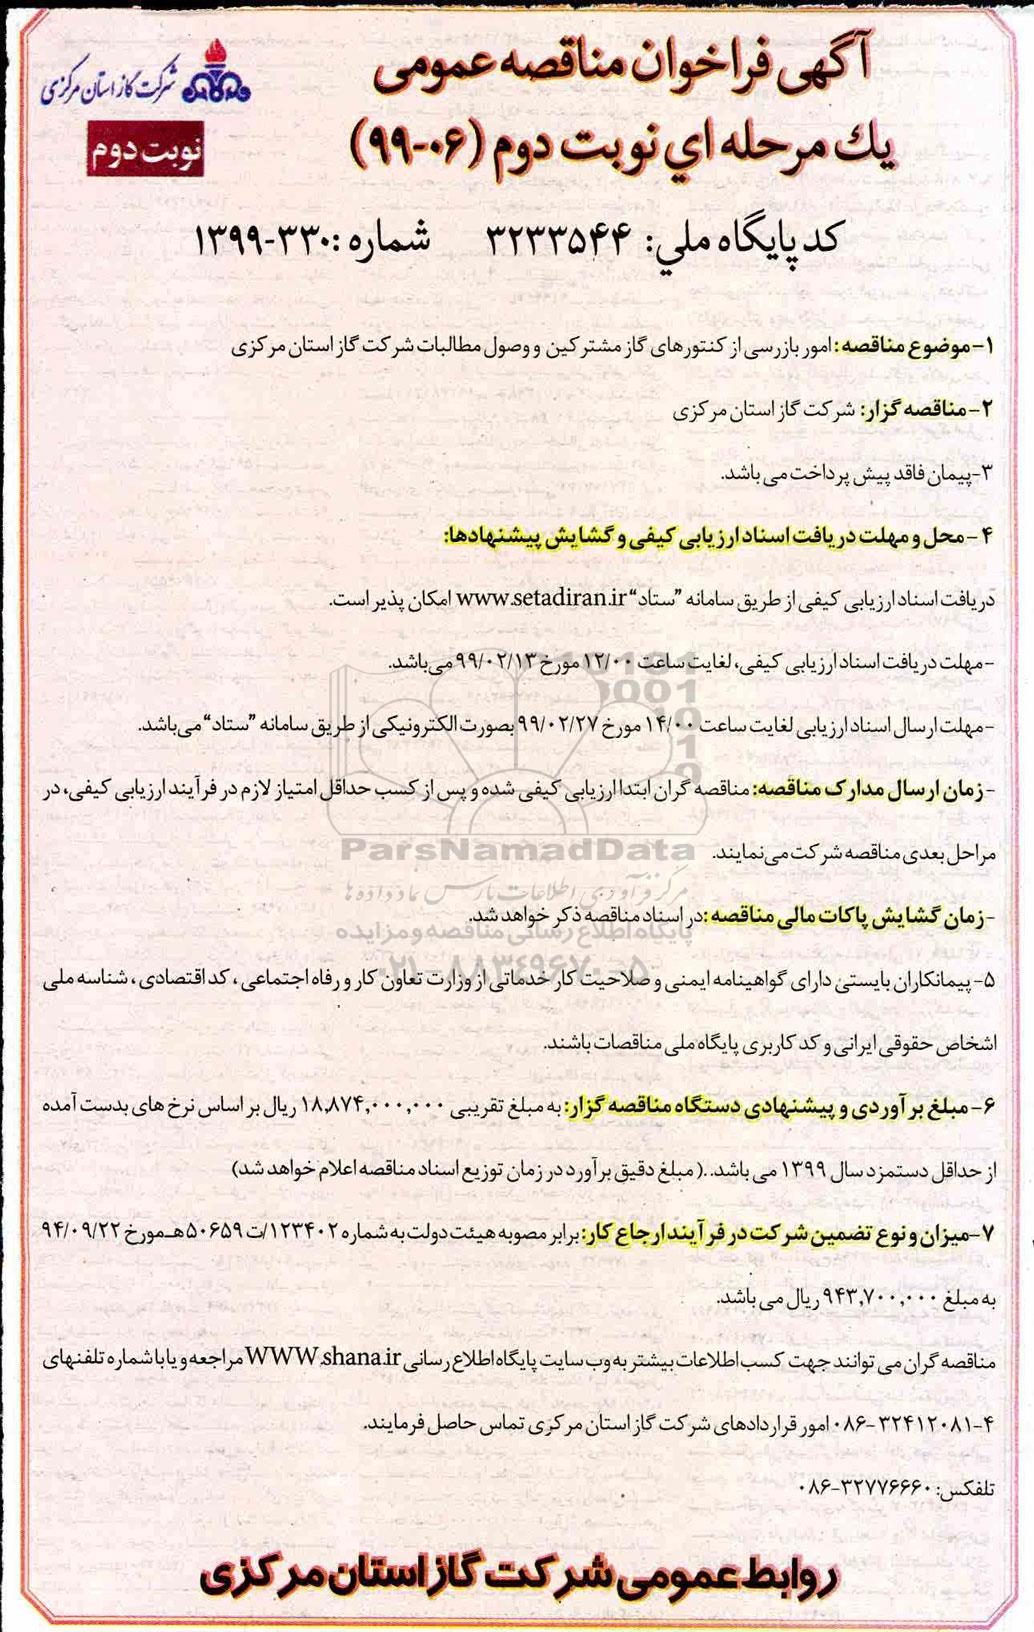 آگهی فراخوان مناقصه عمومی
شرکت گاز استان مرکزی
نوبت دوم
يك مرحله اي نوبت دوم (۰۶-۹۹)
کد پایگاه ملي: ۳۲۳۳۵۴۴ شماره :۳۳۰-۱۳۹۹
۱-موضوع مناقصه: امور بازرسی از کنتورهای گاز مشترکین و وصول مطالبات شرکت گاز استان مرکزی
۲-مناقصه گزار: شرکت گاز استان مرکزی
۳-پیمان فاقد پیش پرداخت می باشد.
۴-محل و مهلت دریافت اسناد ارزیابی کیفی و گشایش پیشنهادها:
دریافت اسناد ارزیابی کیفی از طریق سامانه "ستاد" www.setadiran.ir امکان پذیر است.
-مهلت دریافت اسناد ارزیابی کیفی، لغایت ساعت ۱۲/۰۰ مورخ ۹۹/۰۲/۱۳ می‌باشد.
-مهلت ارسال اسناد ارزیابی لغایت ساعت ۱۴/۰۰ مورخ ۹۹/۰۲/۲۷ بصورت الکترونیکی از طریق سامانه "ستاد" می‌باشد.
-زمان ارسال مدارک مناقصه: مناقصه گران ابتدا ارزیابی کیفی شده و پس از کسب حداقل امتیاز لازم در فرآیند ارزیابی کیفی، در
مراحل بعدی مناقصه شرکت می‌نمایند.
ParsNamadData
مرکز فرآوری اطلاعات پارس نماد داده ها
-زمان گشایش پاکات مالی مناقصه: در اسناد مناقصه ذکر خواهد شد.
پایگاه اطلاع رسانی مناقصه و مزایده
۰۲۱-۸۸۳۴۹۶۷۰-۵
۵-پیمانکاران بایستی دارای گواهینامه ایمنی و صلاحیت کار خدماتی از وزارت تعاون کار و رفاه اجتماعی ، کد اقتصادی ، شناسه ملی
اشخاص حقوقی ایرانی و کد کاربری پایگاه ملی مناقصات باشند.
۶-مبلغ برآوردی و پیشنهادی دستگاه مناقصه گزار: به مبلغ تقریبی ۱۸,۸۷۴,۰۰۰,۰۰۰ ریال بر اساس نرخ های بدست آمده
از حداقل دستمزد سال ۱۳۹۹ می باشد. .( مبلغ دقیق برآورد در زمان توزیع اسناد مناقصه اعلام خواهد شد)
۷-میزان و نوع تضمین شرکت در فرآیند ارجاع کار: برابر مصوبه هیئت دولت به شماره ۱۲۳۴۰۲/ت ۵۰۶۵۹ هـ مورخ ۹۴/۰۹/۲۲
به مبلغ ۹۴۳,۷۰۰,۰۰۰ ریال می باشد.
مناقصه گران می توانند جهت کسب اطلاعات بیشتر به وب سایت پایگاه اطلاع رسانی WWW.shana.ir مراجعه و یا با شماره تلفنهای
۴-۳۲۴۱۲۰۸۱-۰۸۶ امور قراردادهای شرکت گاز استان مرکزی تماس حاصل فرمایند.
تلفکس: ۳۲۷۷۶۶۶۰-۰۸۶
روابط عمومی شرکت گاز استان مرکزی